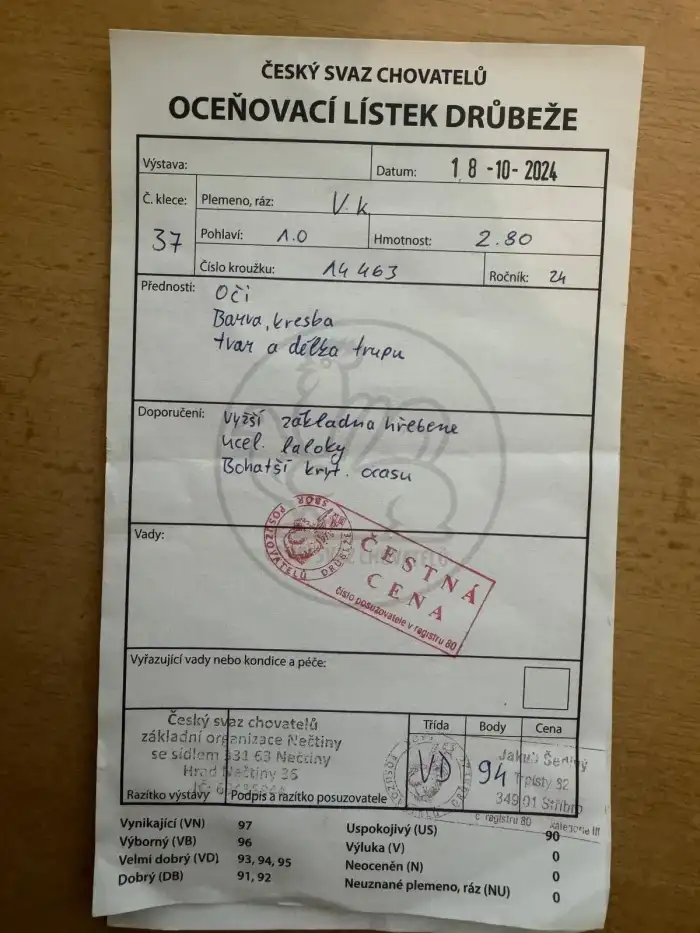 ČESKÝ SVAZ CHOVATELŮ
OCEŇOVACÍ LÍSTEK DRŮBEŽE
Výstava:
Datum: 18 -10- 2024
Č. klece: 37
Plemeno, ráz: V.k
Pohlaví: 1.0
Hmotnost: 2.80
Číslo kroužku: 14 463
Ročník: 24
Přednosti: Oči
Barva, kresba
tvar a délka trupu
Doporučení: Vyšší základna hřebene
ucel. laloky
Bohatší kryt. ocasu
SBOR POSUZOVATELŮ DRŮBEŽE
ČESTNÁ
CENA
číslo posuzovatele v registru 80
SVAZ CHOVATELŮ
Vady:
Vyřazující vady nebo kondice a péče:
Český svaz chovatelů
základní organizace Nečtiny
se sídlem 331 63 Nečtiny
Hrad Nečtiny 36
IČ:
Razítko výstavy
Podpis a razítko posuzovatele
Třída
VD
Body
94
Cena
Jakub
Trpísty 92
349 01 Stříbro
registru 80
kategorie III
Vynikající (VN) 97
Výborný (VB) 96
Velmi dobrý (VD) 93, 94, 95
Dobrý (DB) 91, 92
Uspokojivý (US) 90
Výluka (V) 0
Neoceněn (N) 0
Neuznané plemeno, ráz (NU) 0